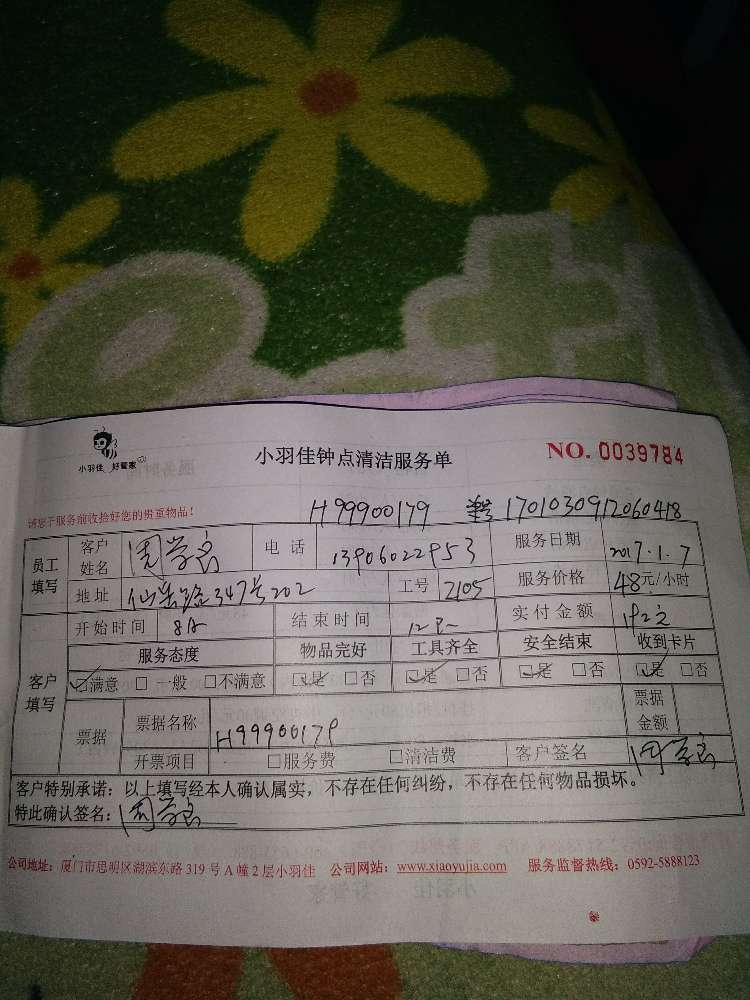 小羽佳 好管家
小羽佳钟点清洁服务单
NO. 0039784
请您于服务前收拾好您的贵重物品!
H99900179 1701030912060418
员工填写 客户姓名 周学 电话 13906022953 服务日期 2017.1.7
地址 仙岳路347号202 工号 2105 服务价格 48元/小时
客户填写 开始时间 8点 结束时间 12点 实付金额 192元
服务态度 物品完好 工具齐全 安全结束 收到卡片
☑满意 □一般 □不满意 ☑是 □否 ☑是 □否 ☑是 □否 ☑是 □否
票据 票据名称 H99900179 票据金额
开票项目 □服务费 □清洁费 客户签名 周学
客户特别承诺:以上填写经本人确认属实,不存在任何纠纷,不存在任何物品损坏。
特此确认签名:周学
公司地址:厦门市思明区湖滨东路 319 号 A 幢 2 层小羽佳 公司网站:www.xiaoyujia.com 服务监督热线:0592-5888123